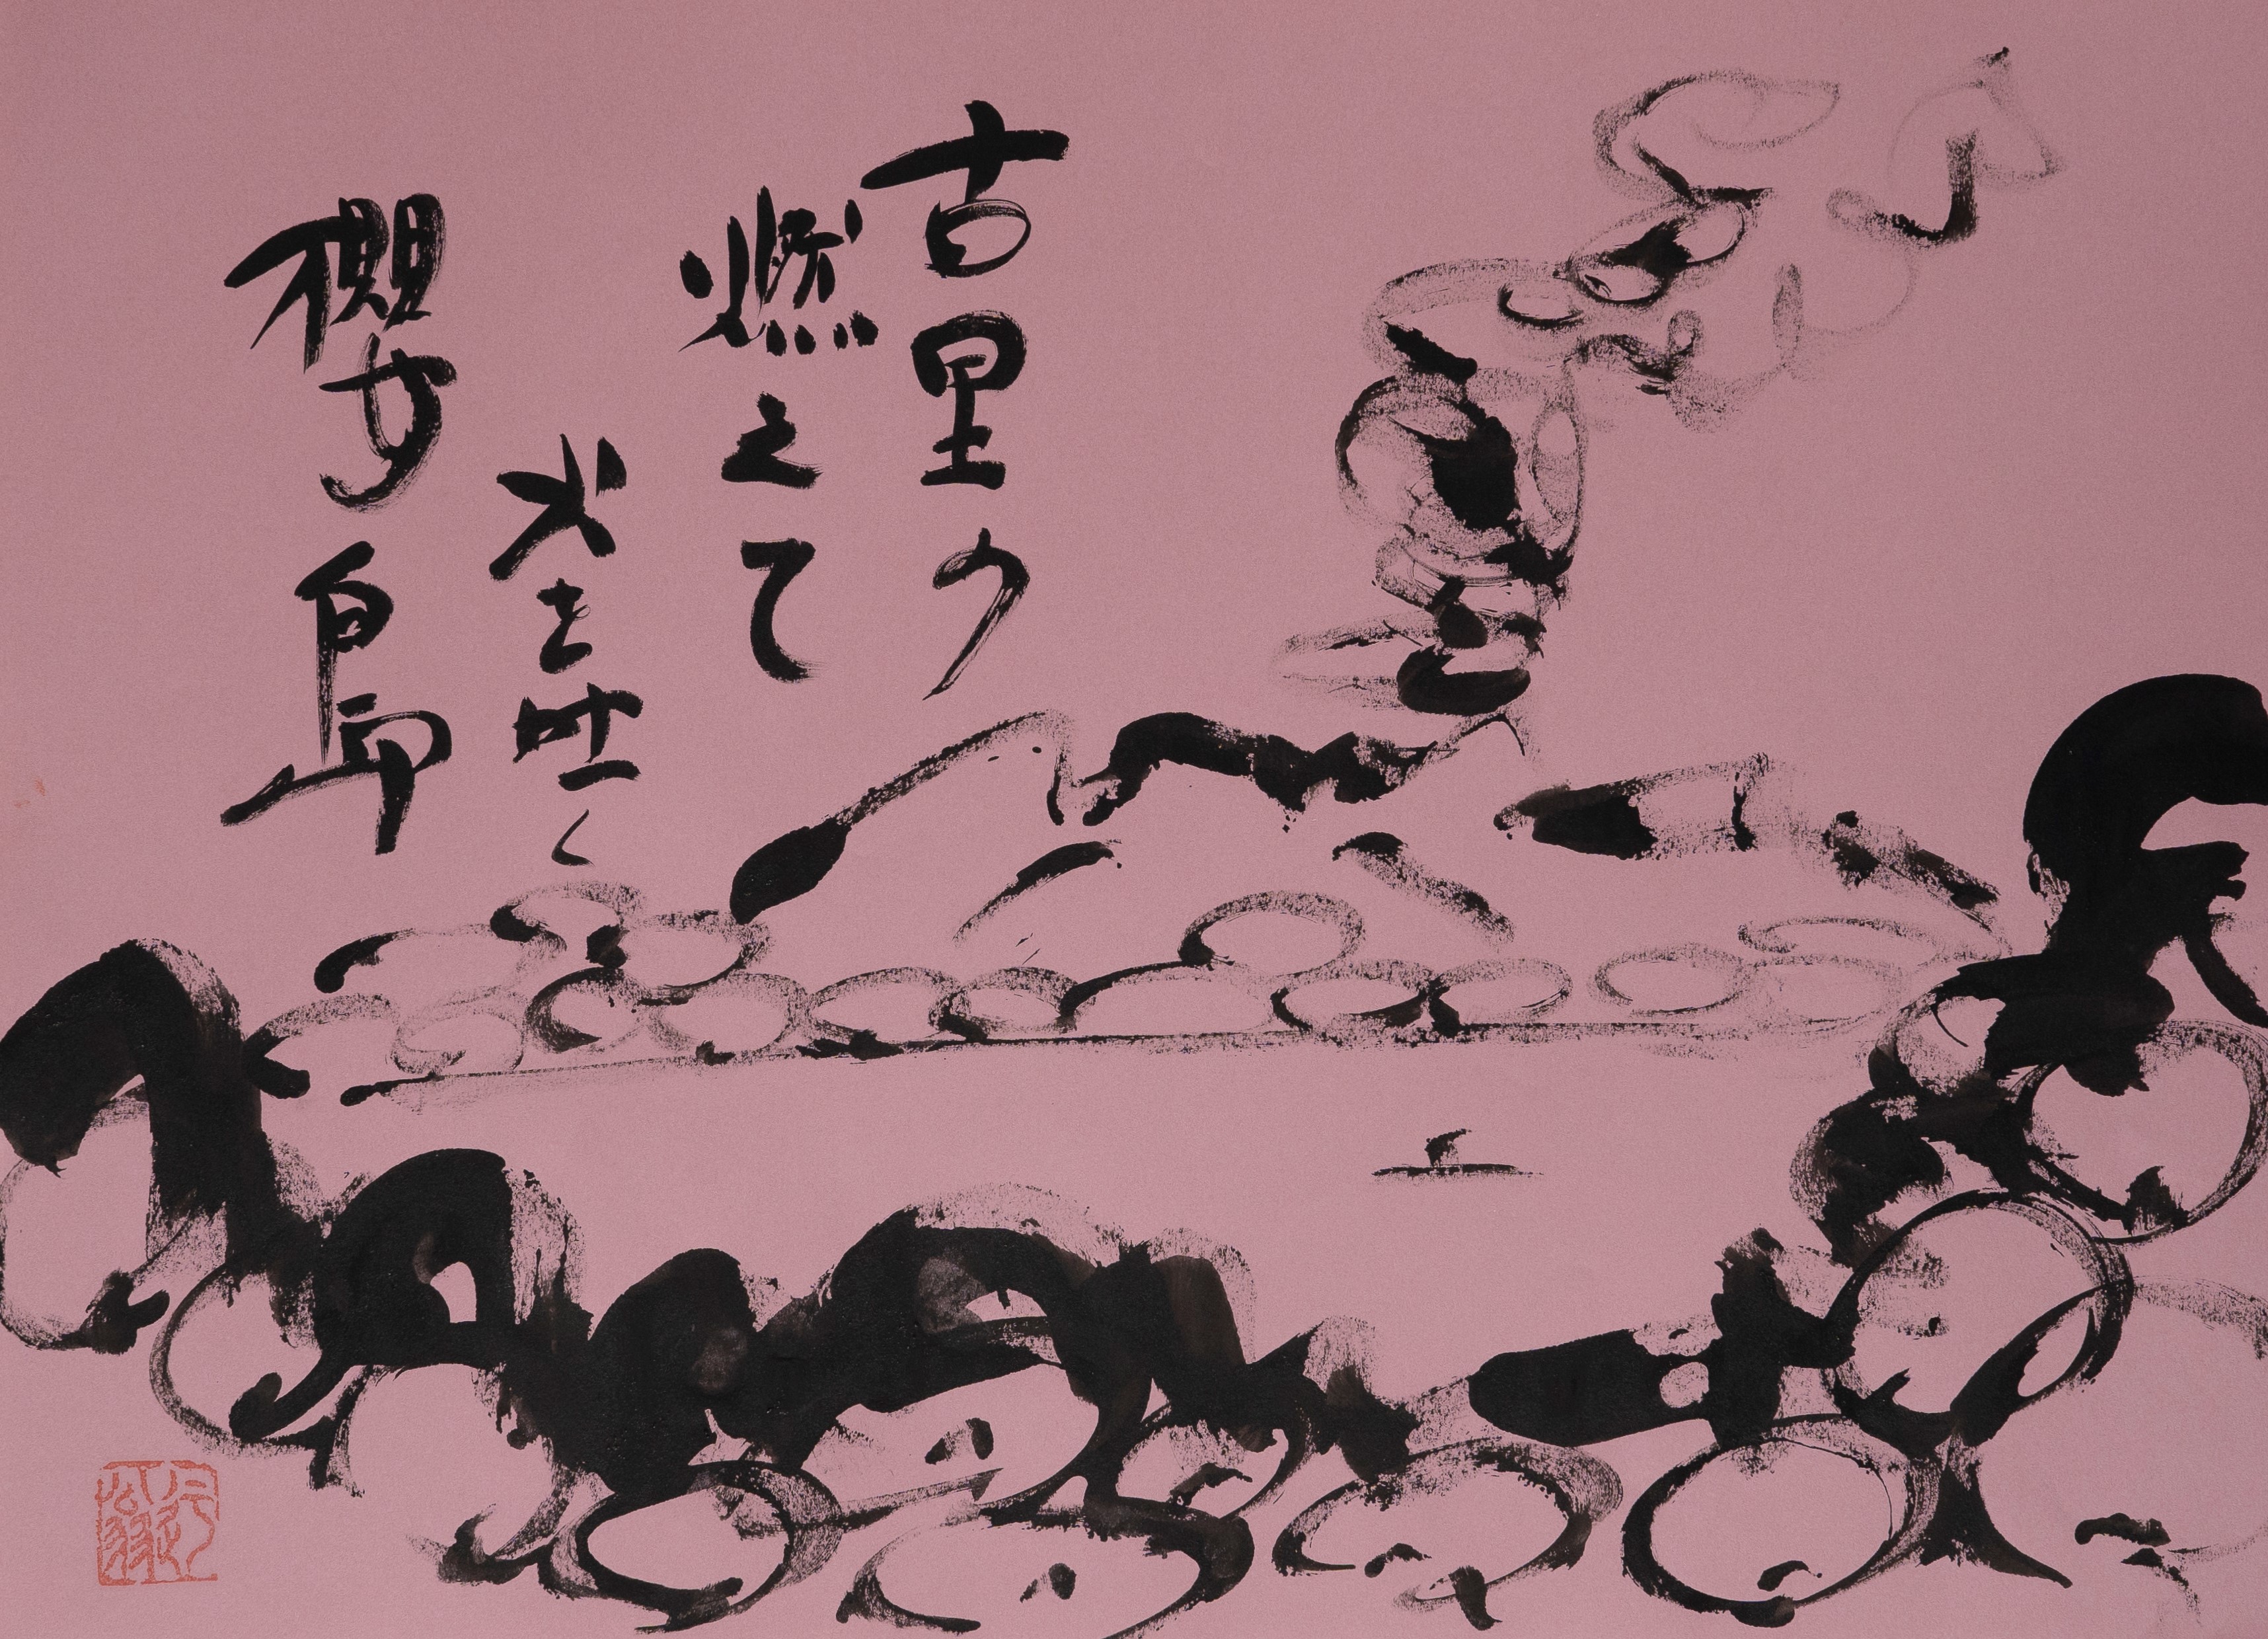 古里の
燃えて
火を吐く
櫻島